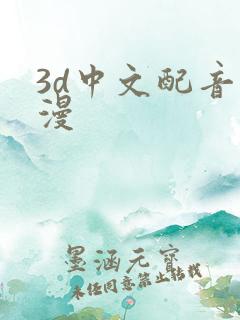 3d中文配音
漫
墨涵元宝
未经同意禁止转载